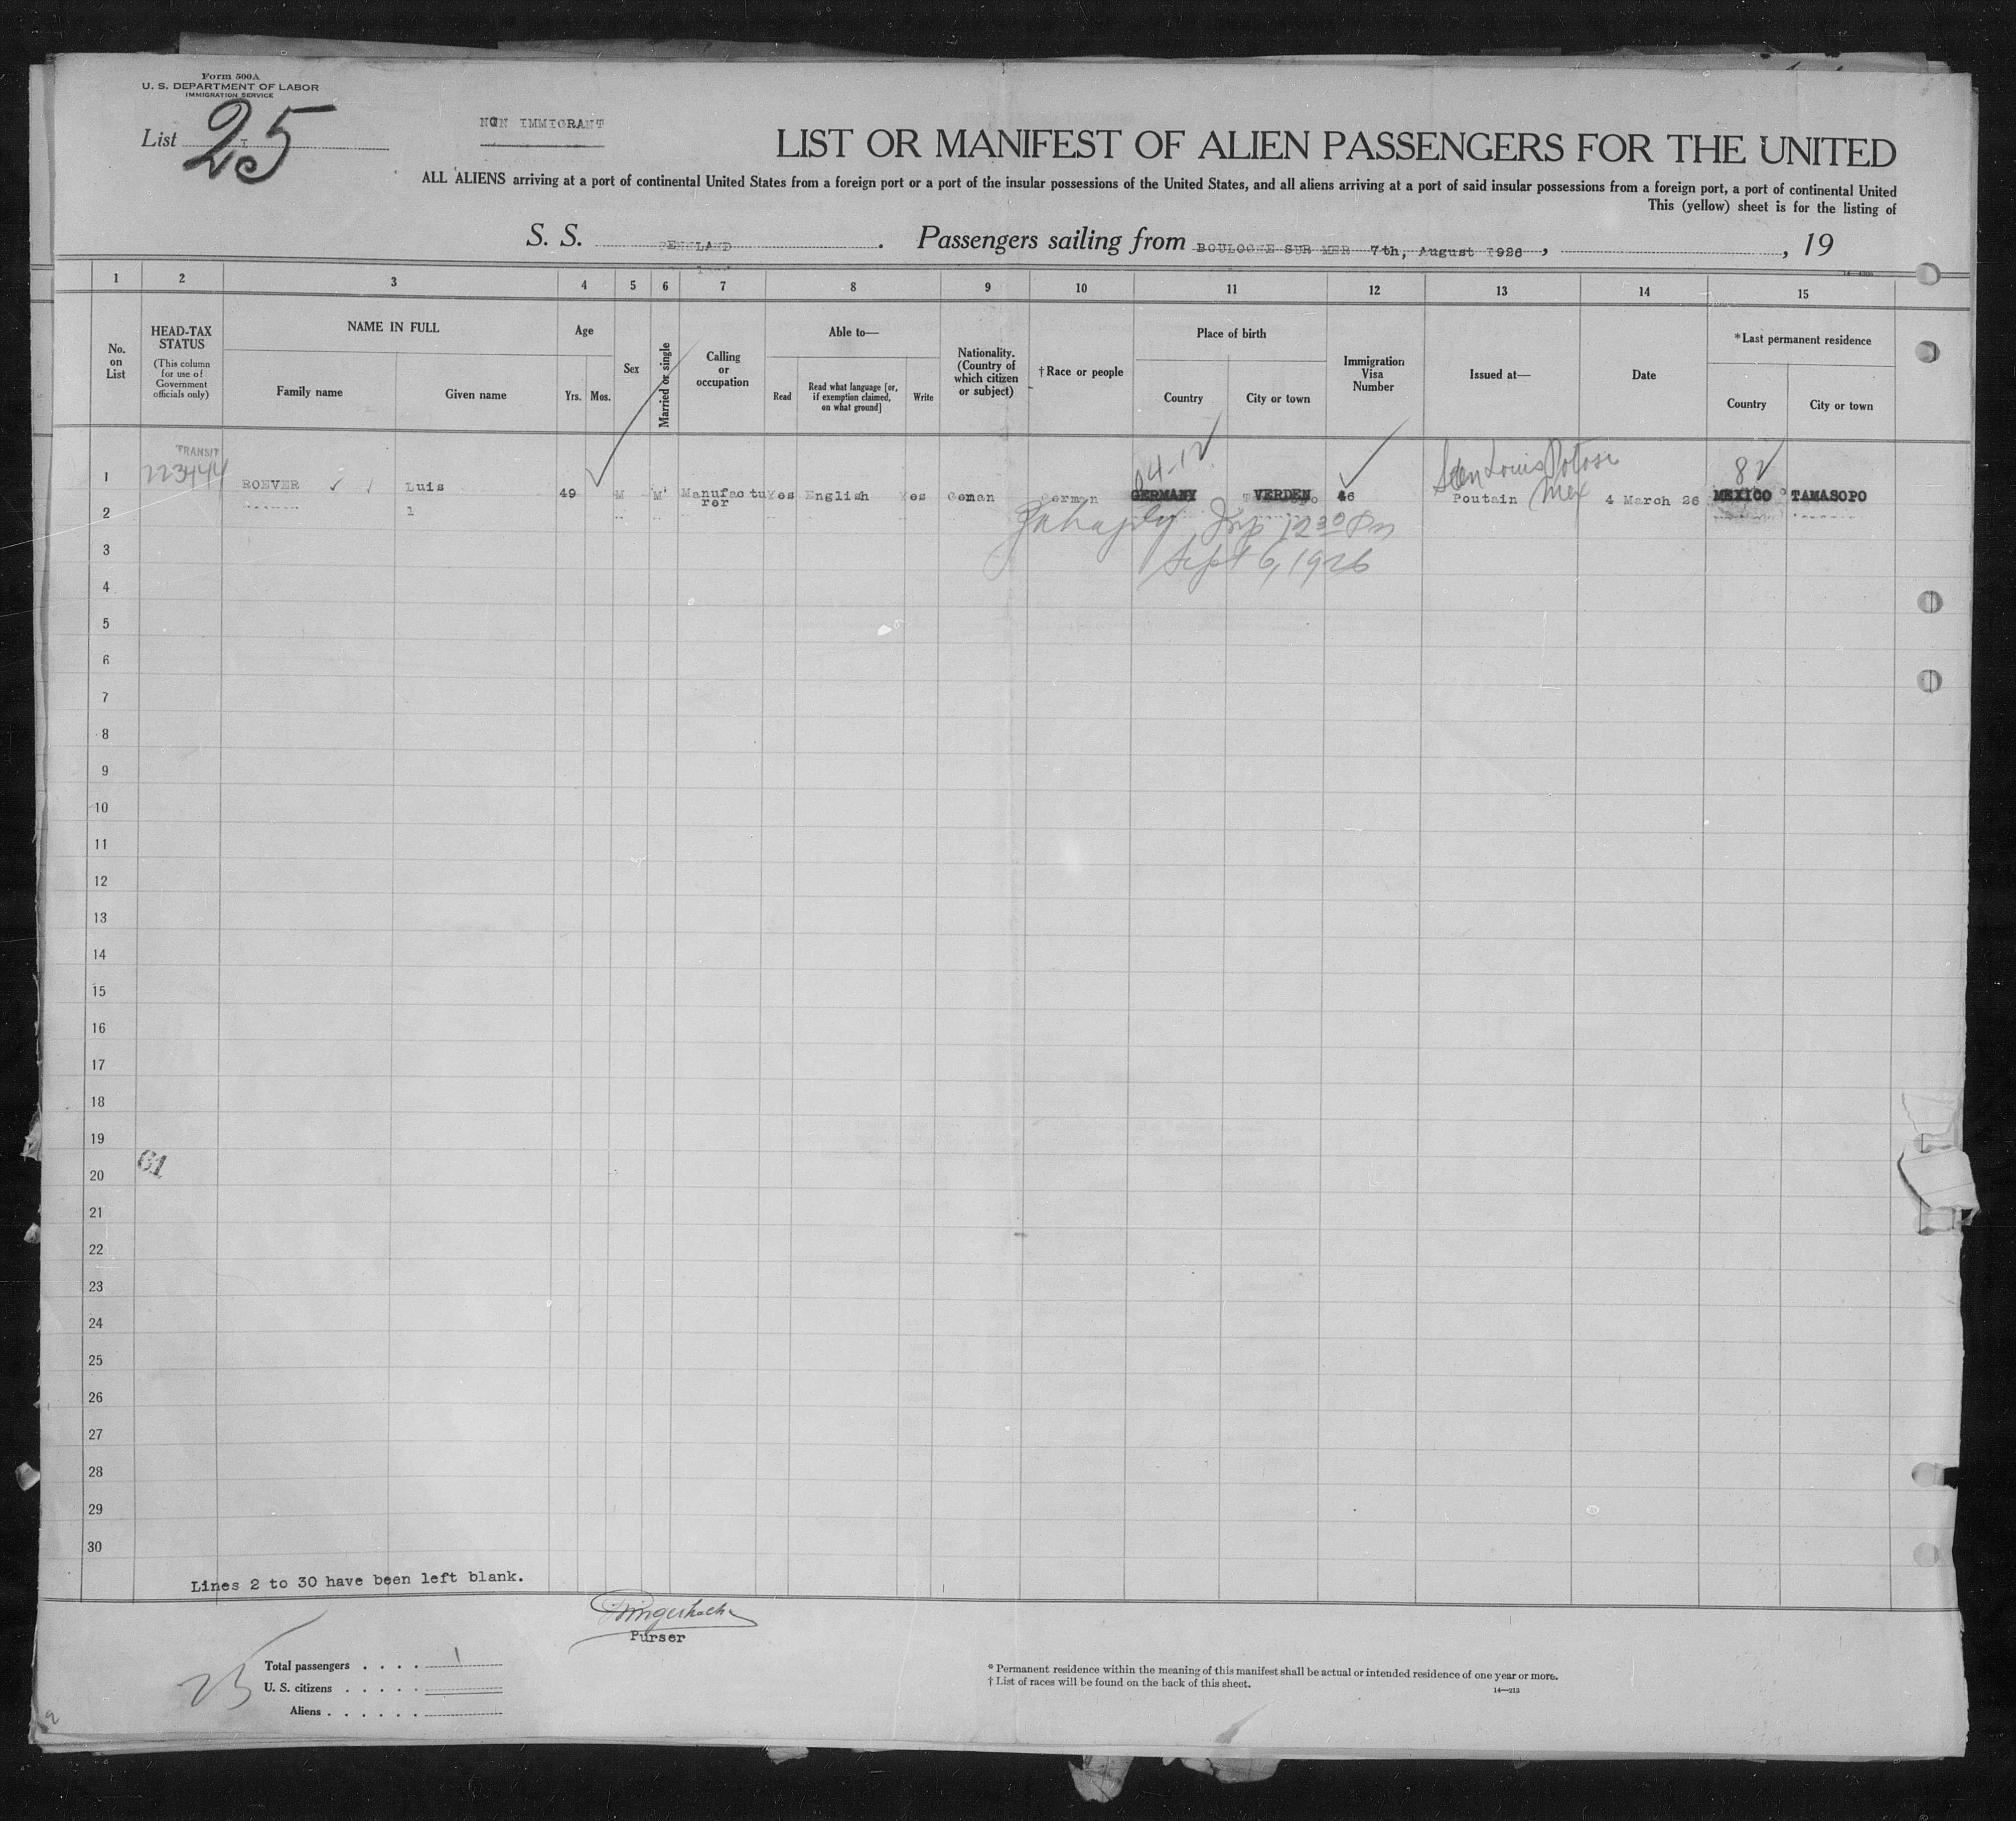 Form 500A
U. S. DEPARTMENT OF LABOR
IMMIGRATION SERVICE
List 25
NON IMMIGRANT
LIST OR MANIFEST OF ALIEN PASSENGERS FOR THE UNITED
ALL ALIENS arriving at a port of continental United States from a foreign port or a port of the insular possessions of the United States, and all aliens arriving at a port of said insular possessions from a foreign port, a port of continental United
This (yellow) sheet is for the listing of
S. S. PENNLAND. Passengers sailing from BOULOGNE SUR MER 7th, August 1926, , 19
1 2 3 4 5 6 7 8 9 10 11 12 13 14 15
No. on List
HEAD-TAX STATUS
(This column for use of Government officials only)
NAME IN FULL
Family name
Given name
Age
Yrs. Mos.
Sex
Married or single
Calling or occupation
Able to—
Read
Read what language [or, if exemption claimed, on what ground]
Write
Nationality. (Country of which citizen or subject)
†Race or people
Place of birth
Country
City or town
Immigration Visa Number
Issued at—
Date
*Last permanent residence
Country
City or town
TRANSIT
223444
04-12
San Louis Potosi
Mex
82
1 ROEVER Luis 49 M M Manufacturer Yes English Yes Geman German GERMANY VERDEN 46 Poutain 4 March 26 MEXICO TAMASOPO
2
12 30 Pm
Sept 6, 1926
3
4
5
6
7
8
9
10
11
12
13
14
15
16
17
18
19
61
20
21
22
23
24
25
26
27
28
29
30
Lines 2 to 30 have been left blank.
Purser
25
Total passengers . . . . 1
U. S. citizens . . . . .
Aliens . . . . . .
* Permanent residence within the meaning of this manifest shall be actual or intended residence of one year or more.
† List of races will be found on the back of this sheet.
14—213